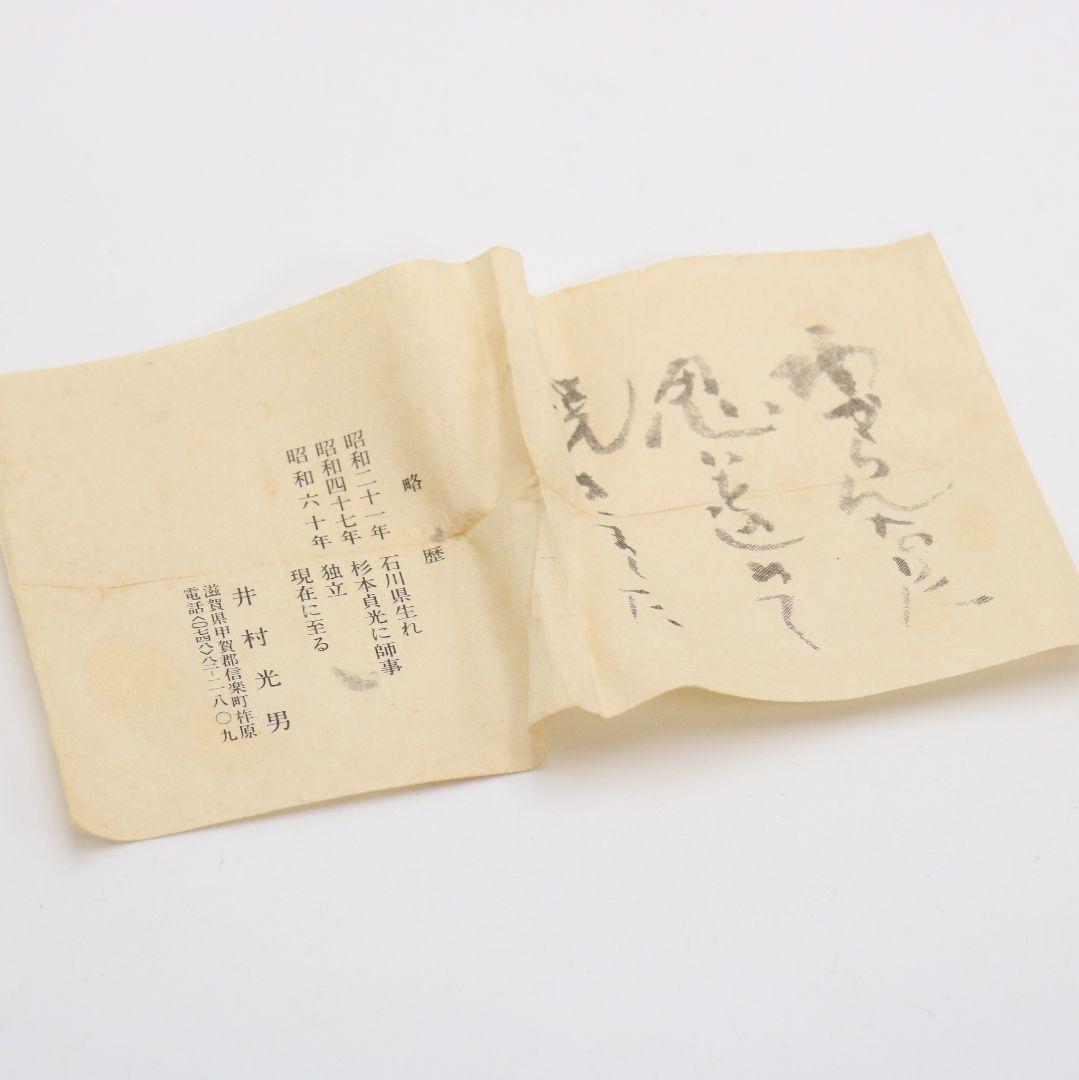 思いを込めて
焼きました
略歴
昭和二十一年 石川県生れ
昭和四十七年 杉本貞光に師事
昭和六十年 独立
現在に至る
井村光男
滋賀県甲賀郡信楽町柞原
電話〈〇七四八〉八二－二八〇九